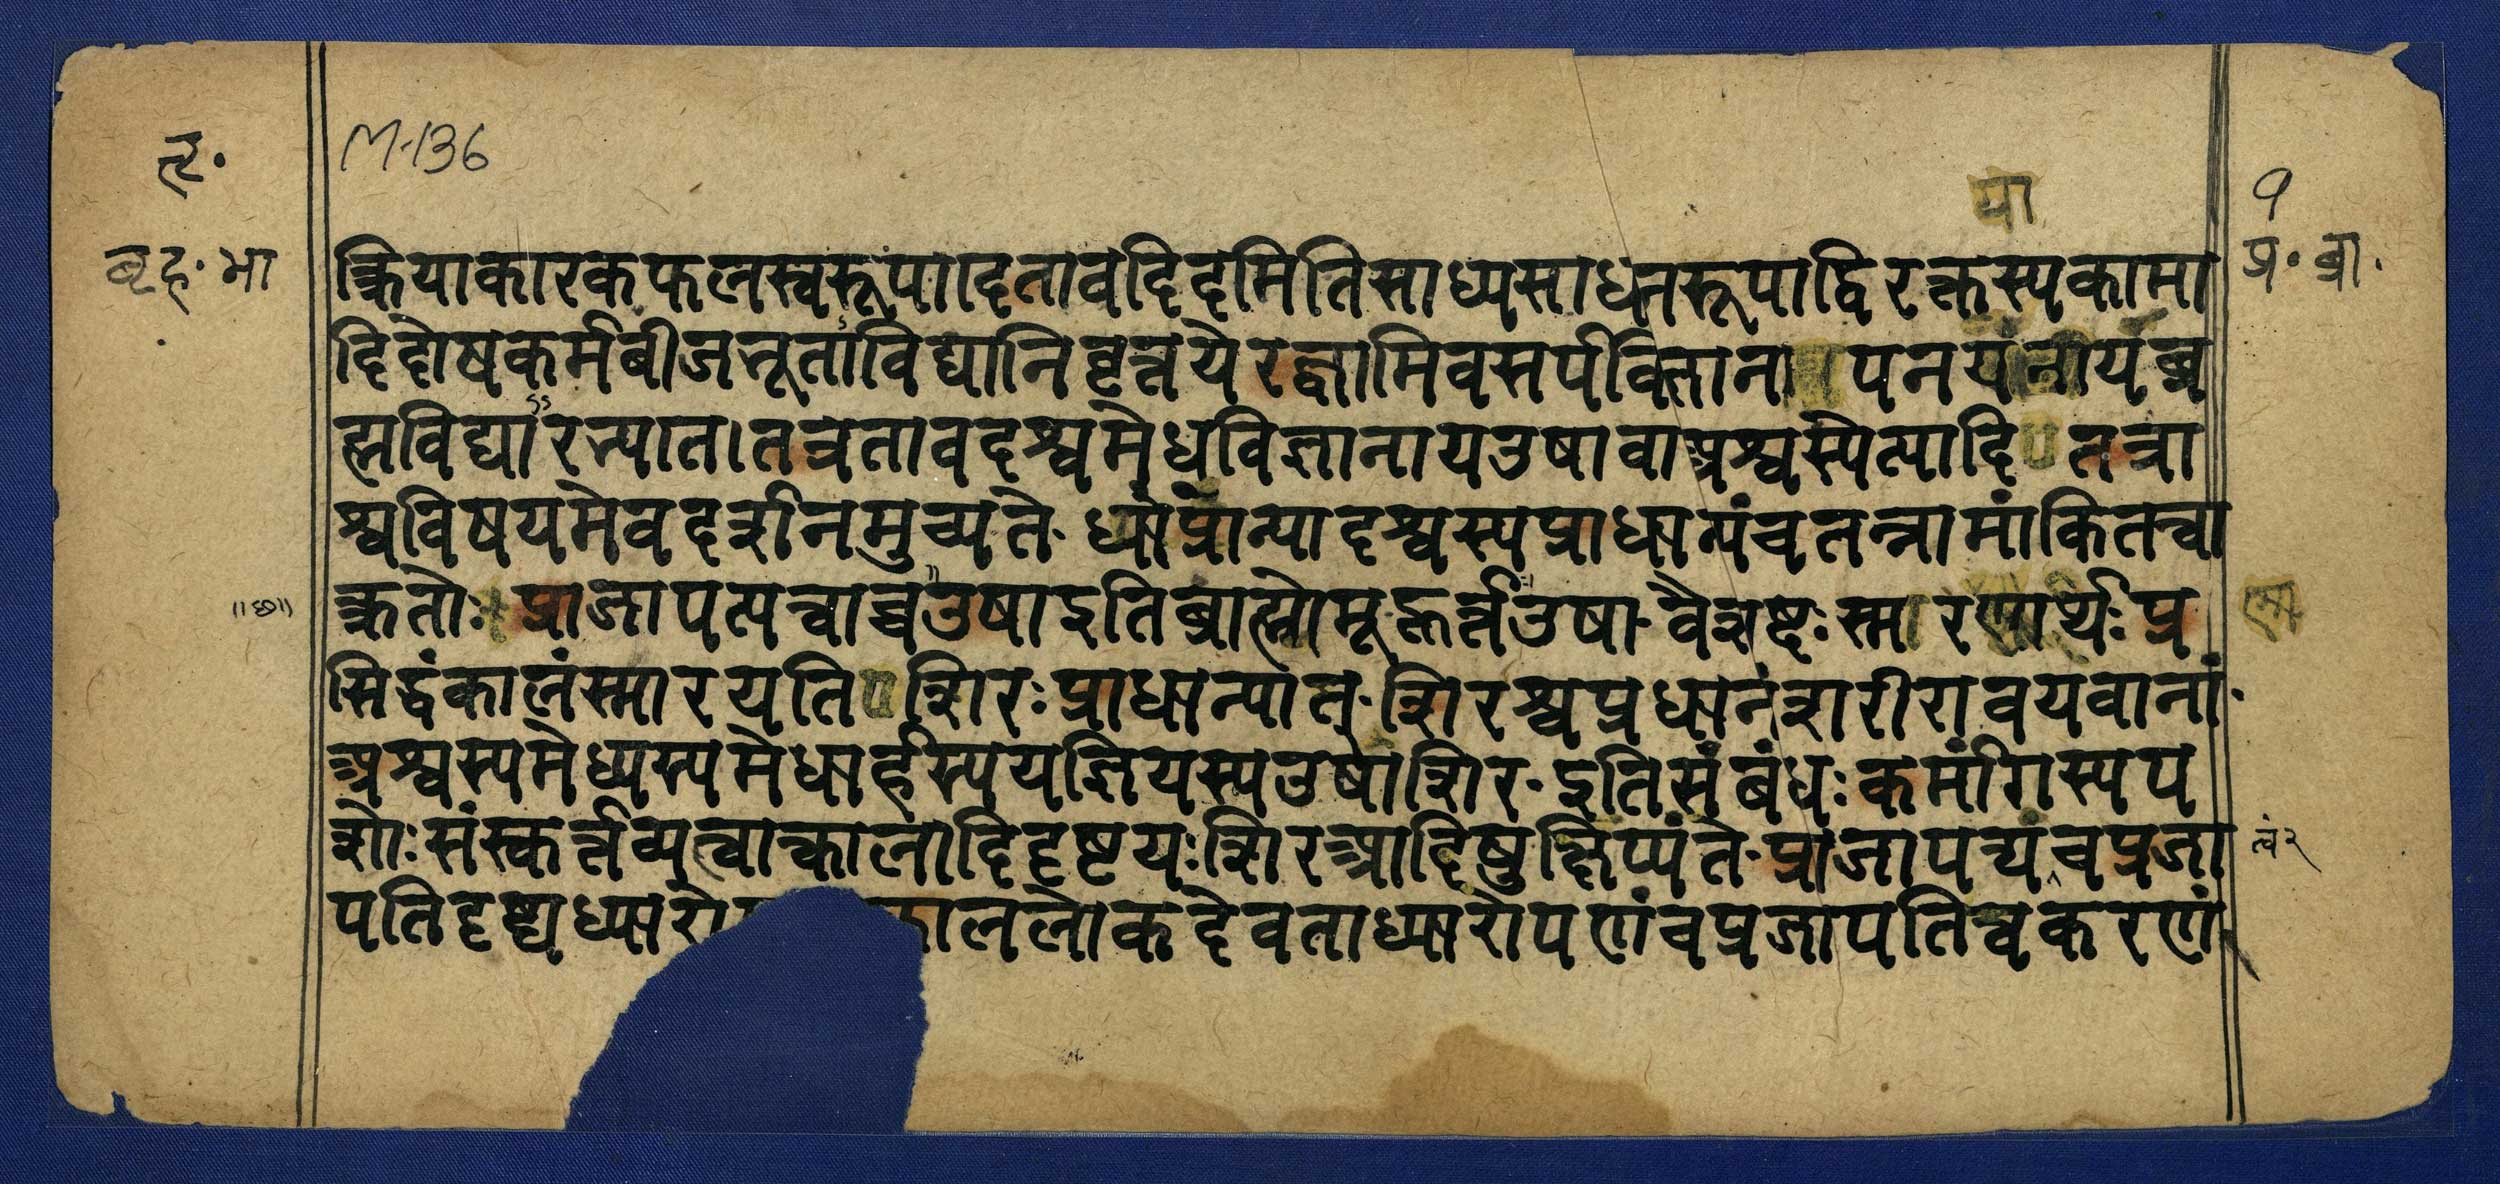 तृ·
M-136
१
या
बृह· भा
प्र· ब्रा·
क्रियाकारकफलस्वरूपादतावदिदमितिसाध्यसाधनरूपाद्विरक्तस्यकामा
दिदोषकर्मबीजभूताविद्यानिवृत्तये रज्वामिवसर्पविज्ञाना पनय ब्र
ह्मविद्या रभ्यात।तत्रतावदश्वमेधविज्ञानायउषावाअश्वस्येत्यादि तत्रा
श्वविषयमेवदर्शनमुच्यते· प्राधान्यादश्वस्यप्राधान्यंचतन्नामांकितत्वा
॥छ॥
क्रतोः प्राजापत्यत्वाच्चउषाइतिब्राह्मोमूहूर्त्तउषा·वैशब्दःस्मारणार्थःप्र
सिद्धंकालंस्मारयति शिरःप्राधान्यात्·शिरश्चप्रधानंशरीरावयवानां·
अश्वस्यमेध्यस्यमेधार्हस्ययज्ञियस्यउषाशिर·इतिसंबंधःकर्मांगस्यप
शोःसंस्कर्त्तव्यत्वात्कालादिदृष्टयःशिरआदिषुक्षिप्यंते·प्राजापत्यंचप्रजा
त्वं२
पतिदृष्ट्यध्यारो ाललोकदेवताध्यारोपणंचप्रजापतित्वकरणं